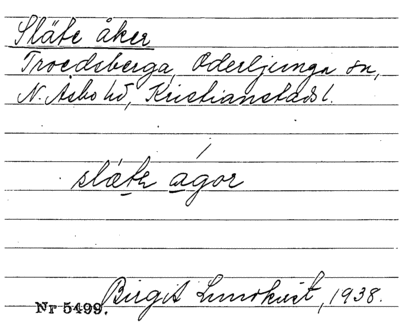 Släte åker
Troedsberga, Oderljunga sn,
N. Åsbo hd, Kristianstads l.
slä́te ágor
Birgit Lundkvist, 1938.
Nr 5499.